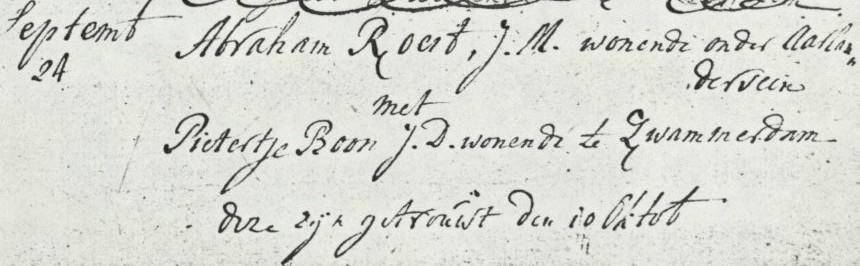 Septemb Abraham Roest, J. M. wonende onder Aarlan=
24 derveen
met
Pietertje Boon J. D. wonende te Zwammerdam
deze zijn getrouwt den 10 Oktob